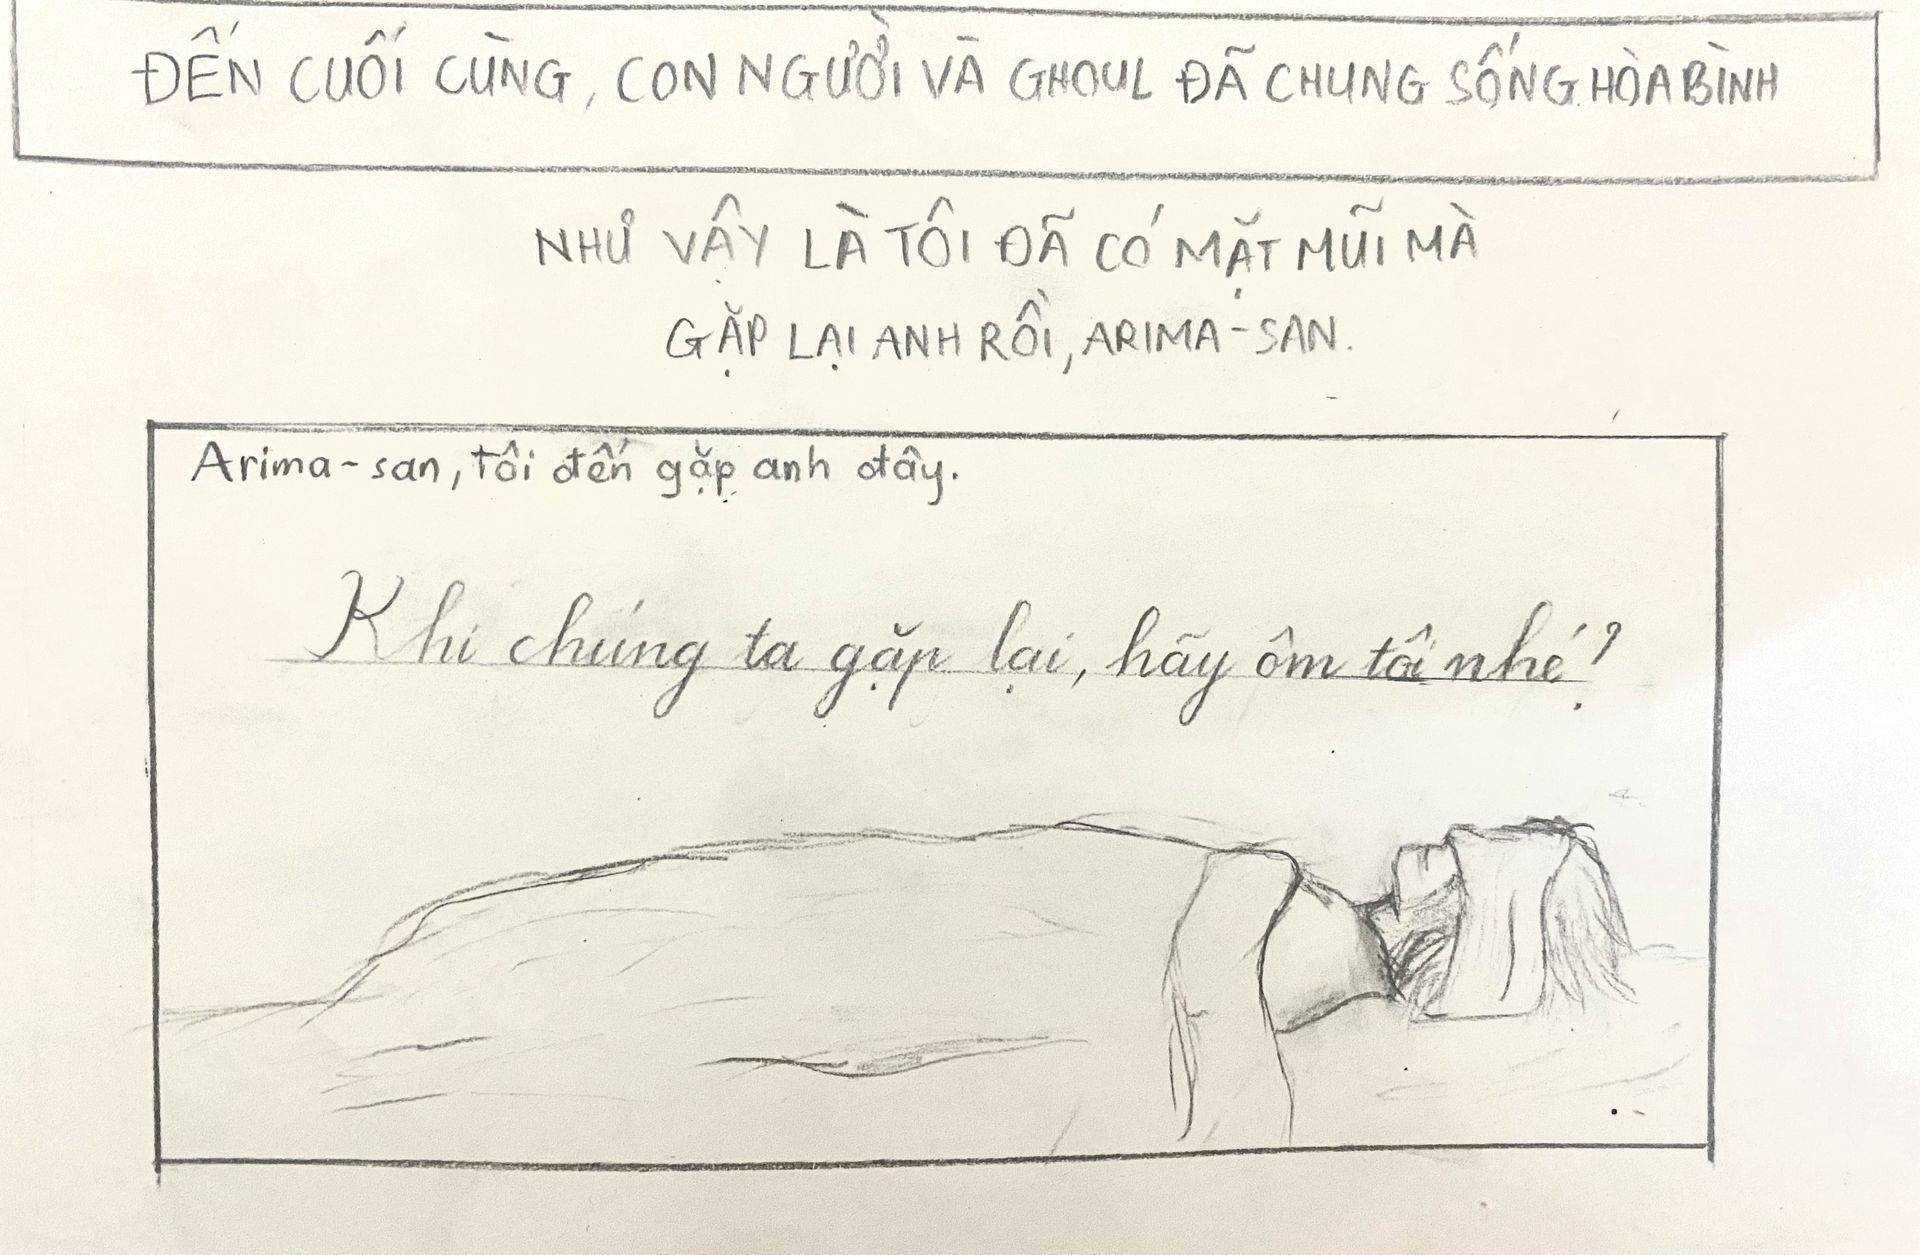 ĐẾN CUỐI CÙNG, CON NGƯỜI VÀ GHOUL ĐÃ CHUNG SỐNG HÒA BÌNH
NHƯ VẬY LÀ TÔI ĐÃ CÓ MẶT MŨI MÀ
GẶP LẠI ANH RỒI, ARIMA-SAN.
Arima-san, tôi đến gặp anh đây.
Khi chúng ta gặp lại, hãy ôm tôi nhé?